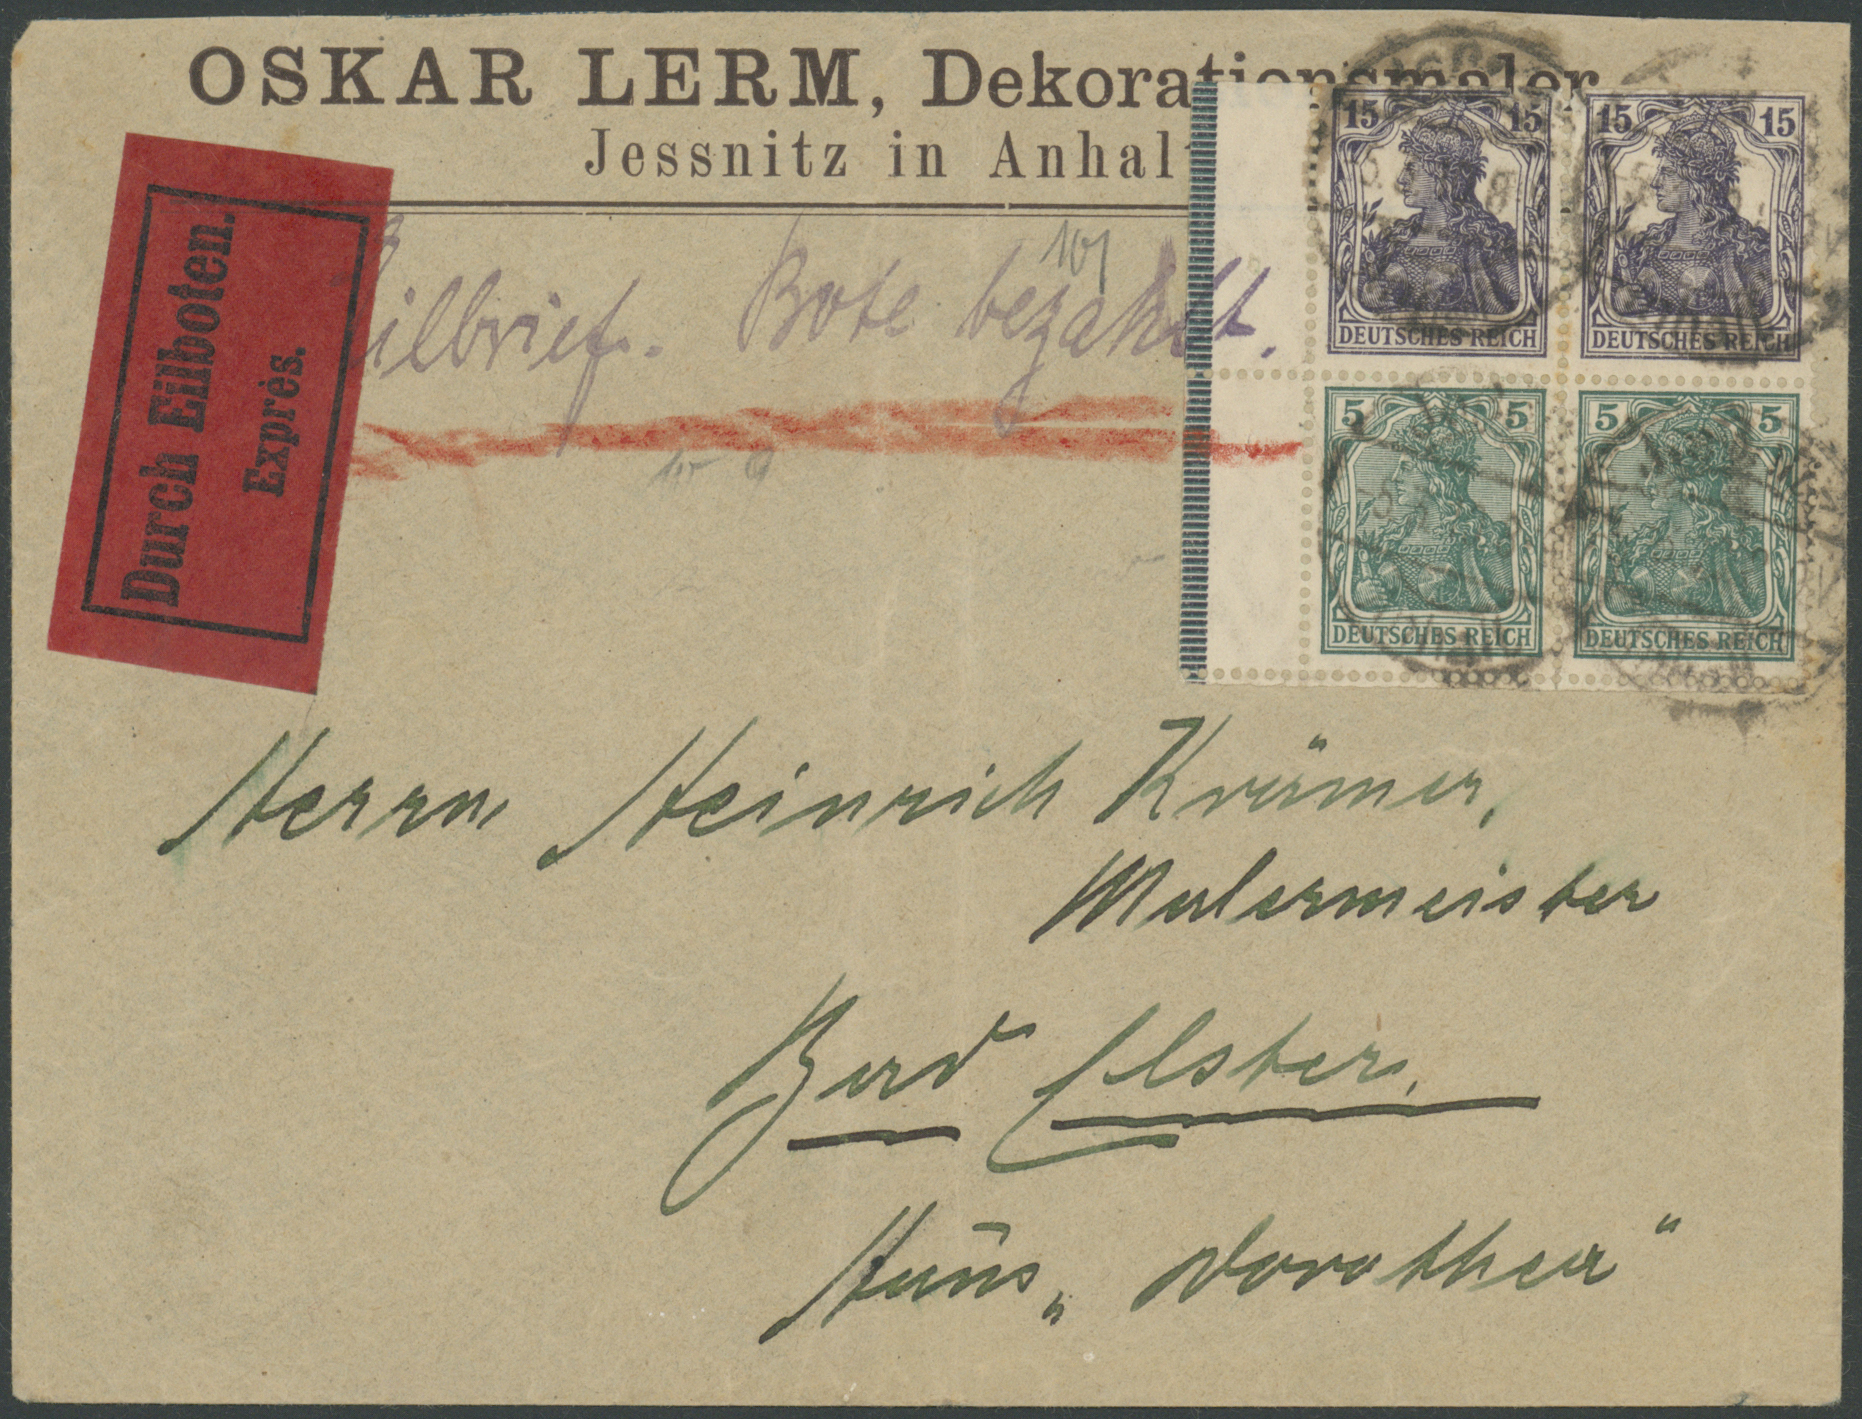 OSKAR LERM, Dekorationsmaler
Jessnitz in Anhalt
Durch Eilboten.
Exprès.
Eilbrief. Bote bezahlt.
15 15
DEUTSCHES REICH
15 15
DEUTSCHES REICH
5 5
DEUTSCHES REICH
5 5
DEUTSCHES REICH
Herrn Heinrich Krämer,
Malermeister
Bad Elster.
Haus „Dorothea"